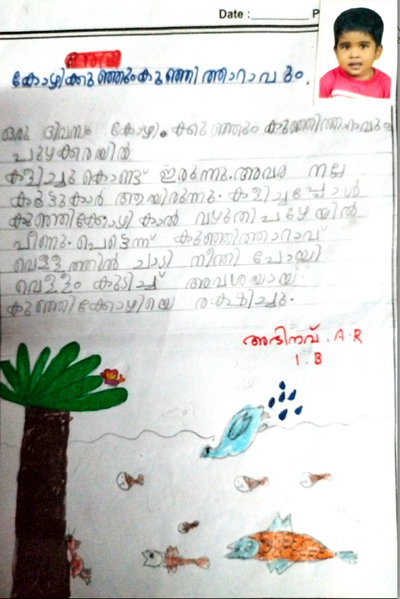 Date : P
കഥ
കോഴിക്കുഞ്ഞും കുഞ്ഞിത്താറാവും.
ഒരു ദിവസം കോഴിക്കുഞ്ഞും കുഞ്ഞിത്താറാവും
പുഴക്കരയിൽ
കളിച്ചു കൊണ്ട് ഇരുന്നു. അവർ നല്ല
കൂട്ടുകാർ ആയിരുന്നു. കളിച്ചപ്പോൾ
കുഞ്ഞിക്കോഴി കാൽ വഴുതി പുഴയിൽ
വീണു. പെട്ടെന്ന് കുഞ്ഞിത്താറാവ്
വെള്ളത്തിൽ ചാടി നീന്തി പോയി
വെള്ളം കുടിച്ച് അവശയായ
കുഞ്ഞിക്കോഴിയെ രക്ഷിച്ചു.
അഭിനവ്. A.R
1.B